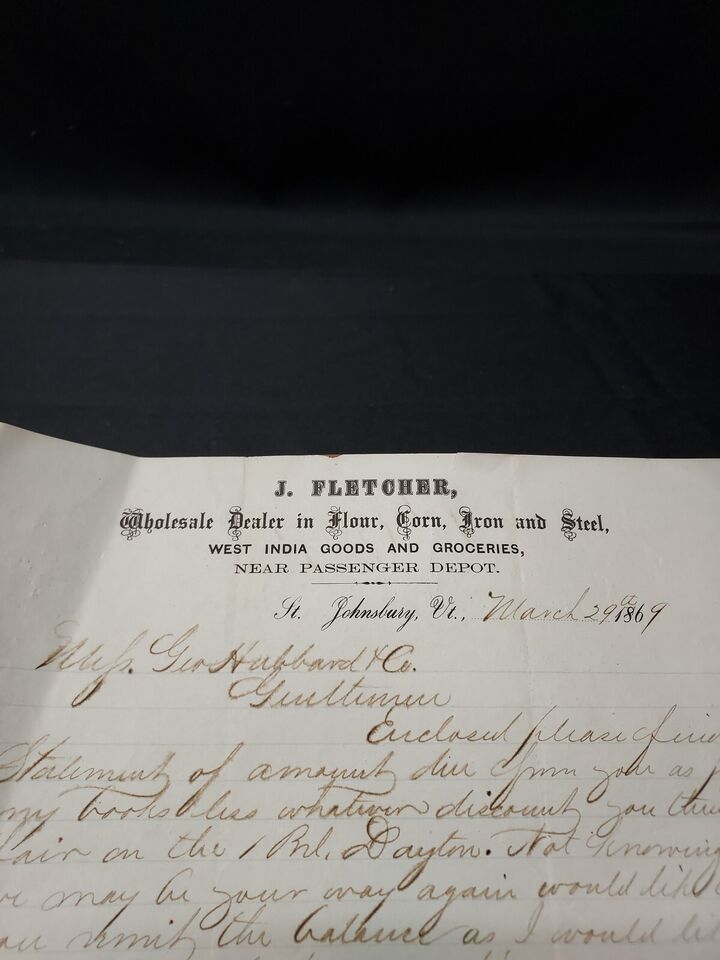 J. FLETCHER,
Wholesale Dealer in Flour, Corn, Iron and Steel,
WEST INDIA GOODS AND GROCERIES,
NEAR PASSENGER DEPOT.
St. Johnsbury, Vt., March 29th 1869
Mess. Geo Hubbard & Co.
Gentlemen
Enclosed please find
Statement of amount due from you as
my books less whatever discount you
fair on the 1 Brl. Dayton. Not knowing
may be your way again would like
remit the balance as I would